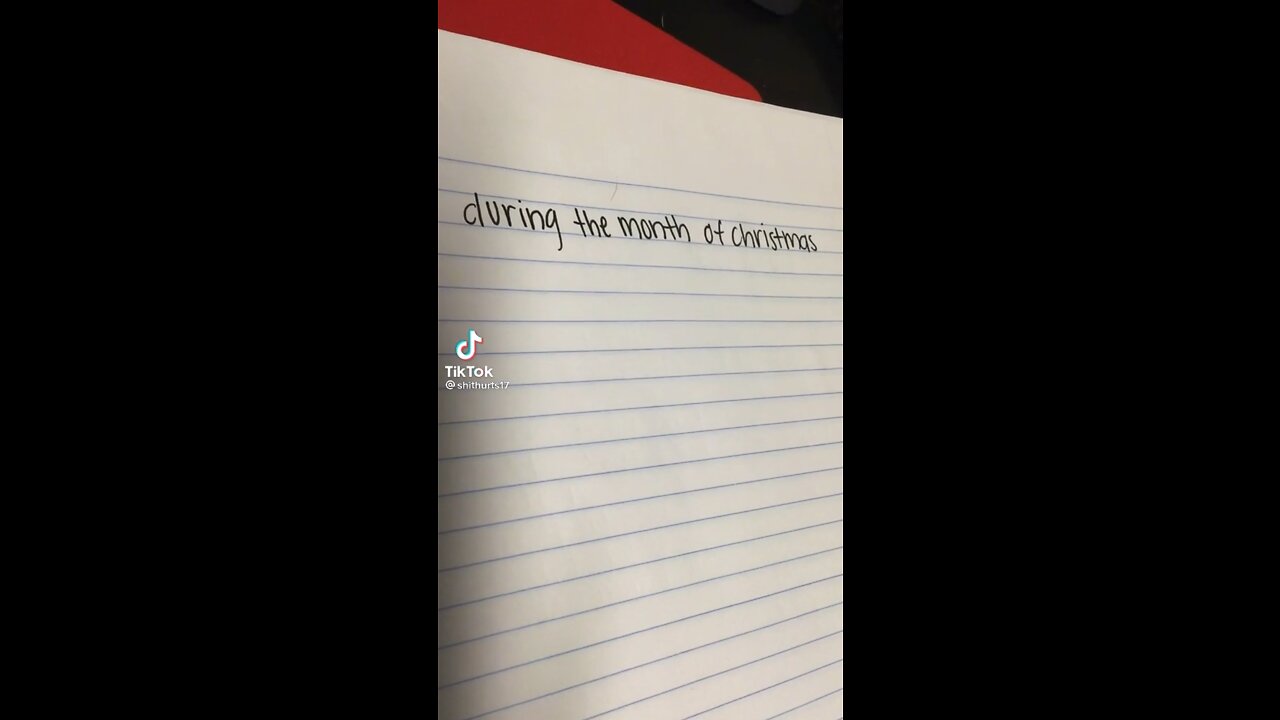 during the month of christmas
TikTok
@shithurts17